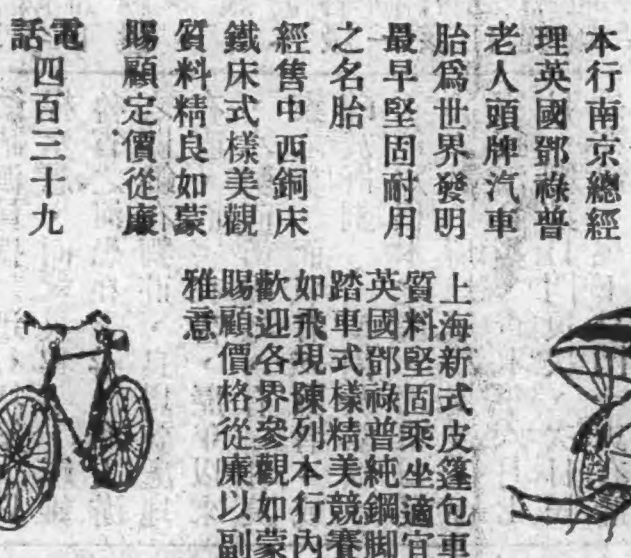 本行南京總經
理英國鄧祿普
老人頭牌汽車
胎爲世界發明
最早堅固耐用
之名胎
經售中西銅床
鐵床式樣美觀
質料精良如蒙
賜顧定價從廉
電話四百三十九
上海新式皮篷包車
質料堅固乘坐適宜
英國鄧祿普純鋼脚
踏車式樣精美競賽
如飛現陳列本行內
歡迎各界參觀如蒙
賜顧價格從廉以副
雅意